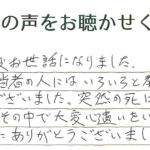 の声をお聴かせく
お世話になりました.
当者の人にはいろいろと教
ございました. 突然の死に
その中で大変心遣いをい
にありがとうございまし